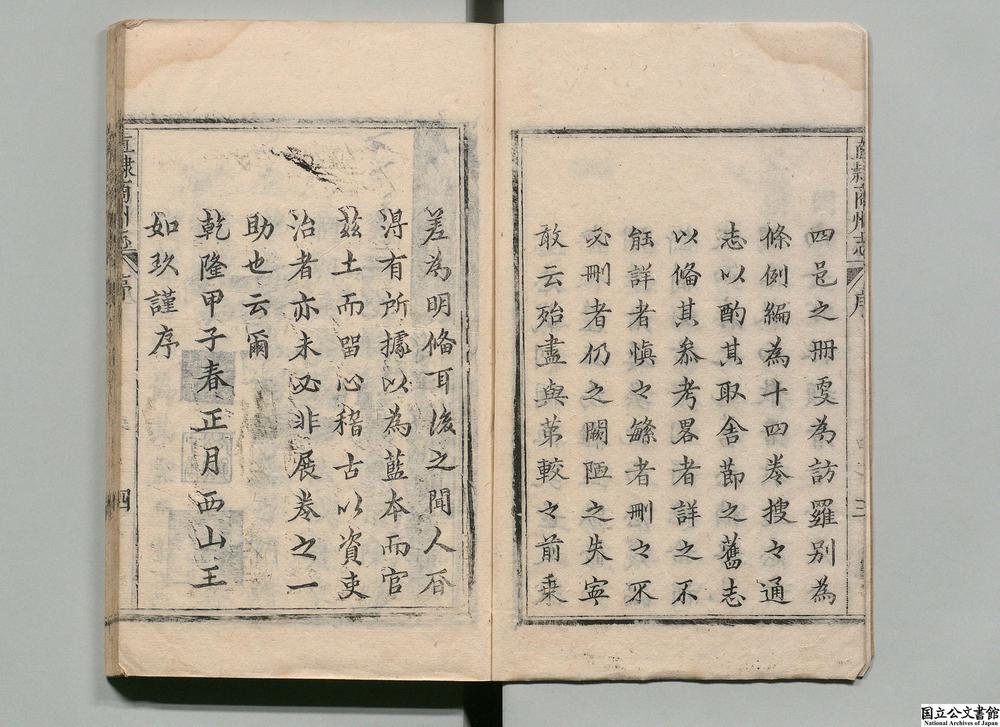 直隸商州志 序 三
四邑之冊更為訪羅別為
條例編為十四卷搜之通
志以酌其取舍節之舊志
以備其參考畧者詳之不
能詳者慎之繁者刪之不
必刪者仍之闕陋之失寧
敢云殆盡與苐較之前乗
差為明俻耳後之聞人碩
淂有所據以為藍本而官
茲土而畱心稽古以資吏
治者亦未必非展卷之一
助也云爾
乾隆甲子春正月西山王
如玖謹序
直隸商州志 序 四
国立公文書館
National Archives of Japan